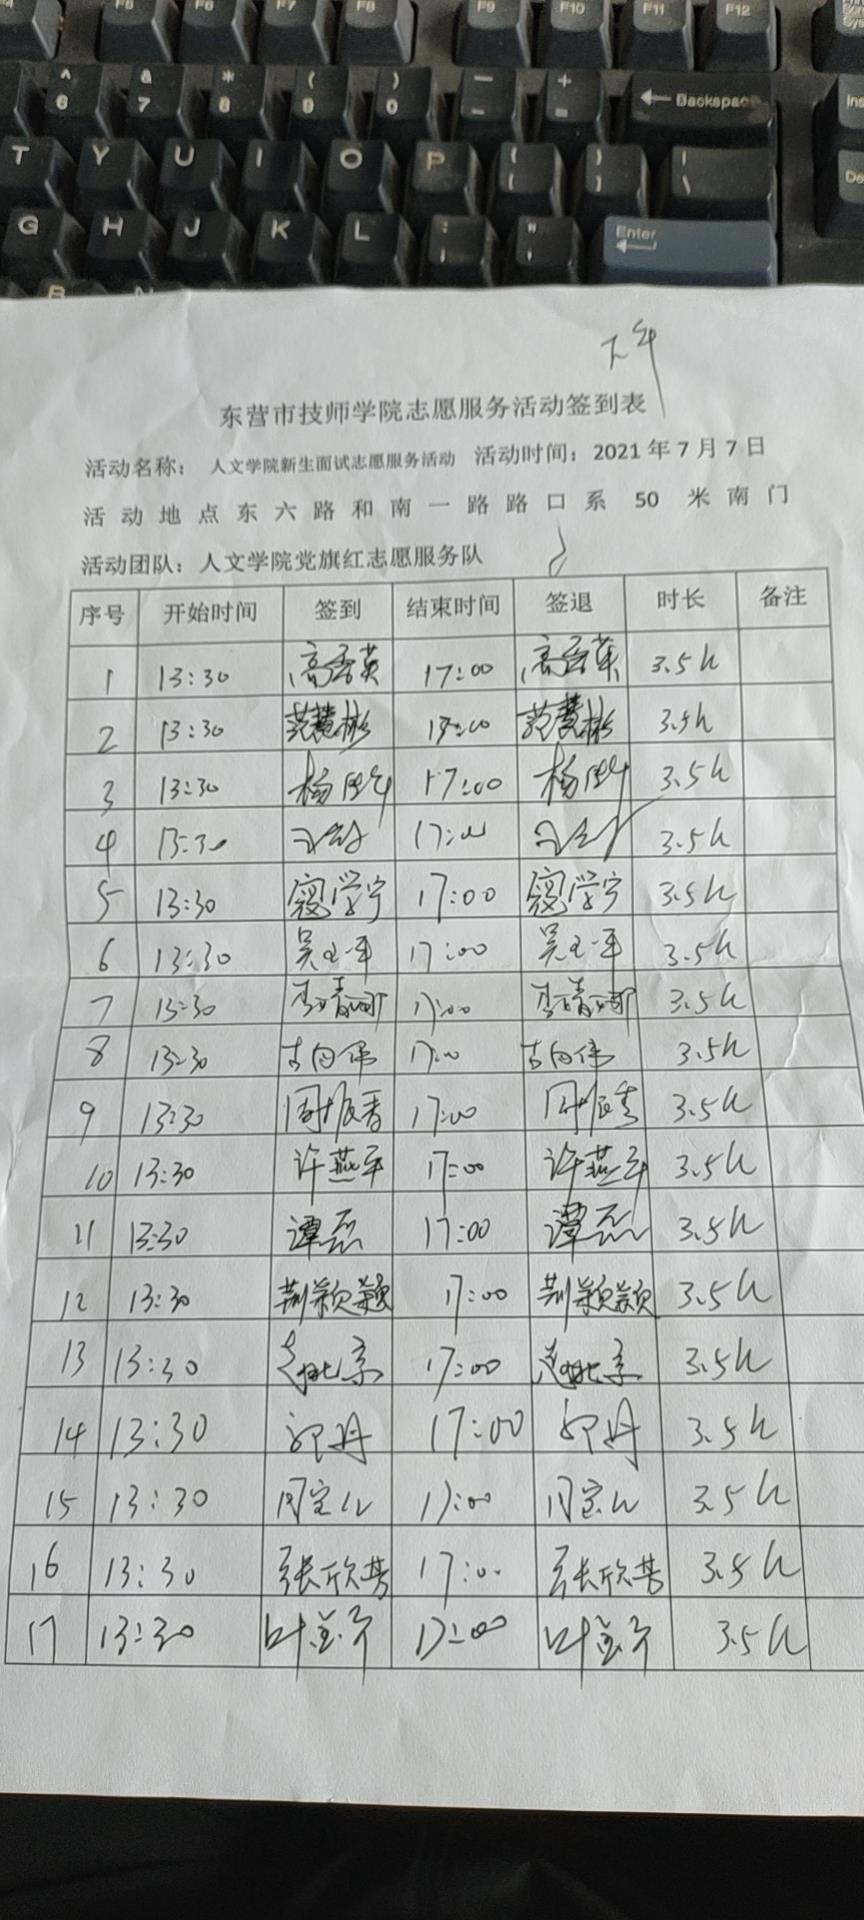 F5 F6 F7 F8 F9 F10 F11 F12
^ 6 & 7 * 8 ( 9 ) 0 — - + = ← Backspace Ins
T Y U I O P { [ } ] | \ De
G H J K L : ; " ' Enter
下午
东营市技师学院志愿服务活动签到表
活动名称： 人文学院新生面试志愿服务活动 活动时间：2021年7月7日
活动地点东六路和南一路路口系 50 米南门
活动团队：人文学院党旗红志愿服务队
序号 开始时间 签到 结束时间 签退 时长 备注
1 13:30 高秀英 17:00 高秀英 3.5h
2 13:30 范慧彬 17:00 范慧彬 3.5h
3 13:30 杨 17:00 杨 3.5h
4 13:30 17:00 3.5h
5 13:30 寇学宁 17:00 寇学宁 3.5h
6 13:30 吴玉平 17:00 吴玉平 3.5h
7 13:30 李青娜 17:00 李青娜 3.5h
8 13:30 17:00 3.5h
9 13:30 周振香 17:00 周振香 3.5h
10 13:30 许燕平 17:00 许燕平 3.5h
11 13:30 谭磊 17:00 谭磊 3.5h
12 13:30 荆颖颖 17:00 荆颖颖 3.5h
13 13:30 17:00 3.5h
14 13:30 郭丹 17:00 郭丹 3.5h
15 13:30 周宝 17:00 周宝 3.5h
16 13:30 张欣芳 17:00 张欣芳 3.5h
17 13:30 叶 17:00 叶 3.5h